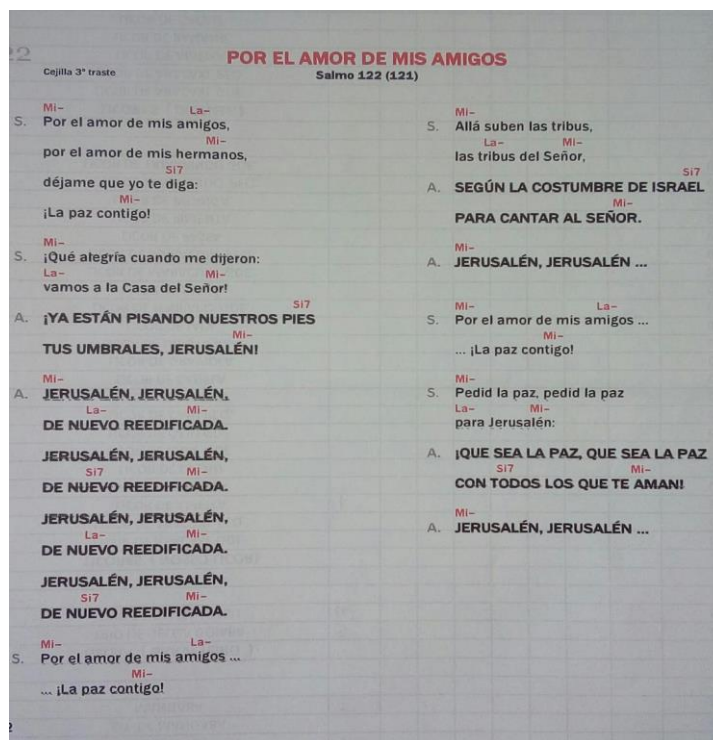 22
POR EL AMOR DE MIS AMIGOS
Cejilla 3ª traste
Salmo 122 (121)
Mi- La-
S. Por el amor de mis amigos,
Mi-
por el amor de mis hermanos,
Si7
déjame que yo te diga:
Mi-
¡La paz contigo!
Mi-
S. ¡Qué alegría cuando me dijeron:
La- Mi-
vamos a la Casa del Señor!
Si7
A. ¡YA ESTÁN PISANDO NUESTROS PIES
Mi-
TUS UMBRALES, JERUSALÉN!
Mi-
A. JERUSALÉN, JERUSALÉN,
La- Mi-
DE NUEVO REEDIFICADA.
JERUSALÉN, JERUSALÉN,
Si7 Mi-
DE NUEVO REEDIFICADA.
JERUSALÉN, JERUSALÉN,
La- Mi-
DE NUEVO REEDIFICADA.
JERUSALÉN, JERUSALÉN,
Si7 Mi-
DE NUEVO REEDIFICADA.
Mi- La-
S. Por el amor de mis amigos ...
Mi-
... ¡La paz contigo!
Mi-
S. Allá suben las tribus,
La- Mi-
las tribus del Señor,
Si7
A. SEGÚN LA COSTUMBRE DE ISRAEL
Mi-
PARA CANTAR AL SEÑOR.
Mi-
A. JERUSALÉN, JERUSALÉN ...
Mi- La-
S. Por el amor de mis amigos ...
Mi-
... ¡La paz contigo!
Mi-
S. Pedid la paz, pedid la paz
La- Mi-
para Jerusalén:
A. ¡QUE SEA LA PAZ, QUE SEA LA PAZ
Si7 Mi-
CON TODOS LOS QUE TE AMAN!
Mi-
A. JERUSALÉN, JERUSALÉN ...